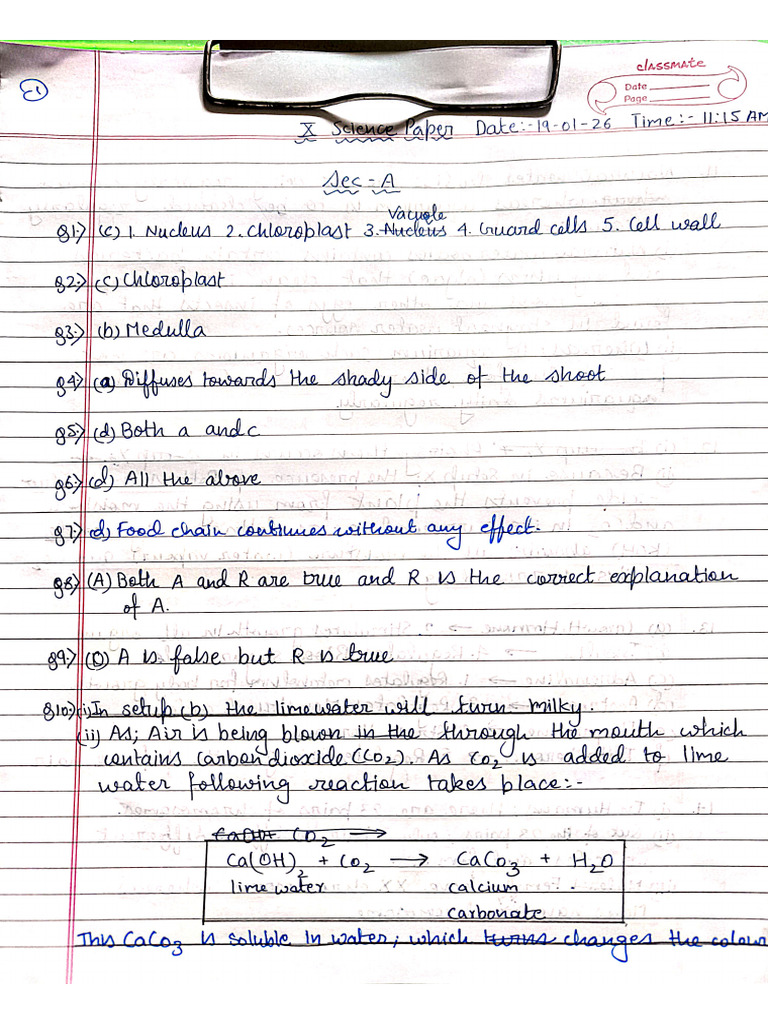 classmate
Date
Page
E1
X Science Paper Date:-19-01-26 Time:- 11:15 AM
Sec-A
Q1:) (c) 1. Nucleus 2. Chloroplast 3. Nucleus Vacuole 4. Guard cells 5. Cell wall
Q2:) (c) Chloroplast
Q3:) (b) Medulla
Q4:) (a) Diffuses towards the shady side of the shoot
Q5:) (d) Both a and c
Q6:) (d) All the above
Q7:) (d) Food chain continues without any effect.
Q8:) (A) Both A and R are true and R is the correct explanation
of A.
Q9:) (D) A is false but R is true
Q10:) (i) In setup (b) the limewater will turn milky.
(ii) As; Air is being blown in the through the mouth which
contains carbondioxide (CO2). As CO2 is added to lime
water following reaction takes place:-
Ca(OH) CO2 →
Ca(OH)2 + CO2 → CaCO3 + H2O
lime water calcium
carbonate
This CaCO3 is soluble in water; which turns changes the colour